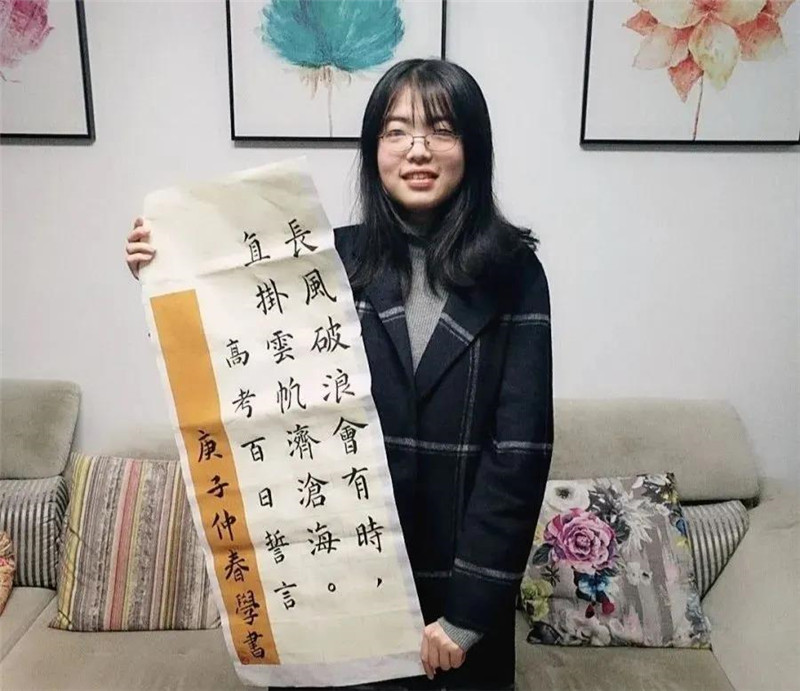 長風破浪會有時，
直掛雲帆濟滄海。
高考百日誓言
庚子仲春學書